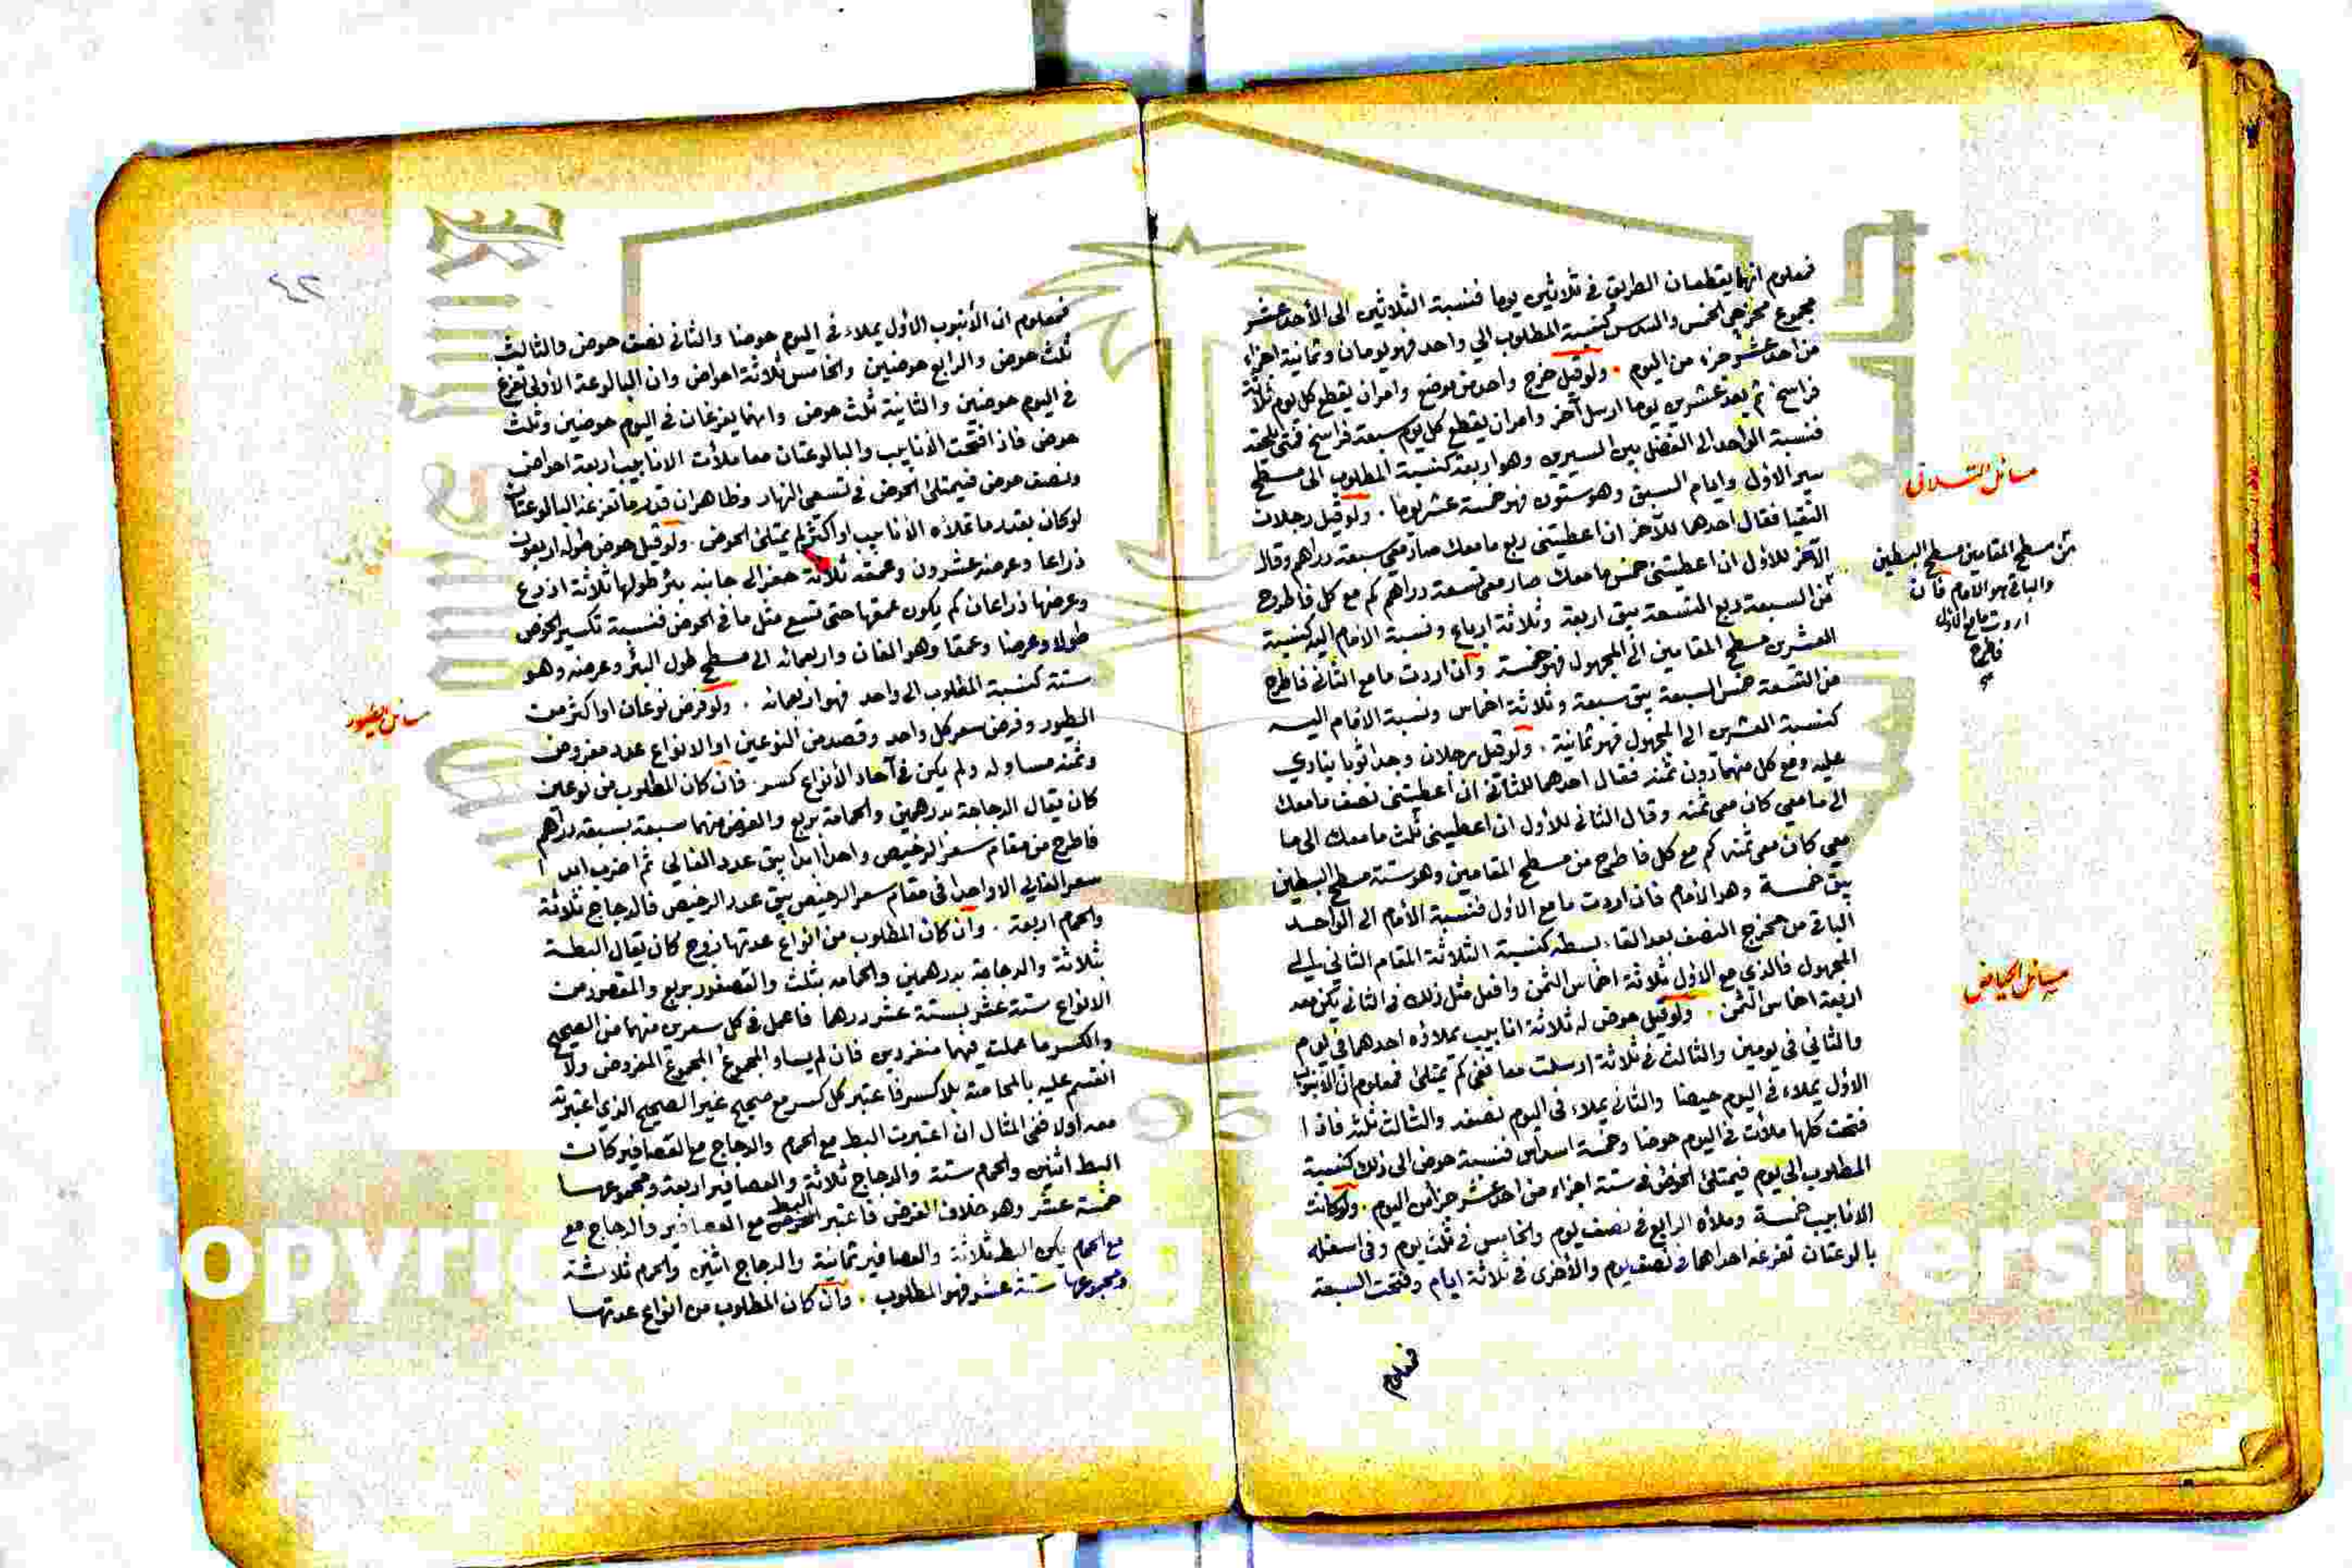 فمعلوم انهما يقطعان الطريق في ثلاثين يوما فنسبة الثلاثين الى الأحد عشر
مجموع مخرجي الخمس والسدس كنسبة المطلوب الى واحد فهو يومان وثمانية اجزاء
من احد عشر جزء من اليوم . ولو قيل خرج واحد من موضع وامران يقطع كل يوم ثلاثة
فراسخ ثم بعد عشرين يوما ارسل آخر وامران يقطع كل يوم سبعة فراسخ فمتى يلحقه
فنسبة الواحد الى الفضل بين المسيرين وهو اربعة كنسبة المطلوب الى مسطح
سير الاول وايام السبق وهو ستون فهو خمسة عشر يوما . ولو قيل رجلان
التقيا فقال احدهما للآخر ان اعطيتني ربع ما معك صار معي سبعة دراهم وقال
الآخر للاول ان اعطيتني خمس ما معك صار معي تسعة دراهم كم مع كل فاطرح
من السبعة ربع التسعة يبق اربعة وثلاثة ارباع ونسبة الامام اليه كنسبة
العشرين مسطح المقامين الى المجهول فهو خمسة وان اردت ما مع الثاني فاطرح
من التسعة خمس السبعة يبق سبعة وثلاثة اخماس ونسبة الامام اليه
كنسبة العشرين الى المجهول فهو ثمانية . ولو قيل رجلان وجدا ثوبا ينادي
عليه ومع كل منهما دون ثمنه فقال احدهما للثاني ان أعطيتني نصف ما معك
الى ما معي كان معي ثمنه وقال الثاني للاول ان اعطيتني ثلث ما معك الى ما
معي كان معي ثمنه كم مع كل فاطرح من مسطح المقامين وهو ستة مسطح البسطين
يبق خمسة وهو الامام فان اردت ما مع الاول فنسبة الأمام الى الواحد
الباقي من مخرج النصف بعد القاء بسطه كنسبة الثلاثة المقام الثاني الى
المجهول فالذي مع الاول ثلاثة اخماس الثمن وافعل مثل ذلك في الثاني يكن معه
اربعة اخماس الثمن . ولو قيل حوض له ثلاثة انابيب يملاؤه احدهما في يوم
والثاني في يومين والثالث في ثلاثة ارسلت معا ففي كم تمتلئ فمعلوم ان الانبوب
الاول يملاء في اليوم حوضا والثاني يملاء في اليوم نصفه والثالث ثلثه فاذا
فتحت كلها ملأت في اليوم حوضا وخمسة اسداس فنسبة حوض الى ذلك كنسبة
المطلوب الى يوم فيمتلئ الحوض في ستة اجزاء من احد عشر جزأ من اليوم . ولو كانت
الانابيب خمسة وملأه الرابع في نصف يوم والخامس في ثلث يوم وفي اسفله
بالوعتان تفرغه احداهما في نصف يوم والأخرى في ثلاثة ايام وفتحت السبعة
فمعلوم
مسائل التلاقي
من مسطح المقامين مسطح البسطين
والباقي هو الامام فان
اردت ما مع الاول
فاطرح
مسائل الحياض
٤٢
فمعلوم ان الأنبوب الاول يملاء في اليوم حوضا والثاني نصف حوض والثالث
ثلث حوض والرابع حوضين والخامس ثلاثة احواض وان البالوعة الأولى تفرغ
في اليوم حوضين والثانية ثلث حوض وانهما يفرغان في اليوم حوضين وثلث
حوض فاذا فتحت الأنابيب والبالوعتان معا ملأت الانابيب اربعة احواض
ونصف حوض فيمتلئ الحوض في تسعي النهار وظاهر ان قدر ما تفرغه البالوعتان
لو كان بقدر ما تملاه الأنابيب او اكثر لم يمتلئ الحوض . ولو قيل حوض طوله اربعون
ذراعا وعرضه عشرون وعمقه ثلاثة حفر الى جانبه بئر طولها ثلاثة اذرع
وعرضها ذراعان كم يكون عمقها حتى تسع مثل ما في الحوض فنسبة تكسير الحوض
طولا وعرضا وعمقا وهو الفان واربعمائه الى مسطح طول البئر وعرضه وهو
ستة كنسبة المطلوب الى واحد فهو اربعمائه . ولو فرض نوعان او اكثر من
الطيور وفرض سعر كل واحد وقصد من النوعين او الانواع عدد مفروض
وثمنه مساو له ولم يكن في آحاد الأنواع كسر . فان كان المطلوب من نوعين
كان يقال الدجاجة بدرهمين والحمامة بربع والغرض منهما سبعة بسبعة دراهم
فاطرح من مقام سعر الرخيص واحدا ابدا يبق عدد الغالي ثم اضرب ابدا
سعر الغالي الا واحدا في مقام سعر الرخيص يبق عدد الرخيص فالدجاج ثلاثة
والحمام اربعة . وان كان المطلوب من انواع عدتها زوج كان يقال البطة
بثلاثة والدجاجة بدرهمين والحمامه بثلث والعصفور بربع والمقصود من
الانواع ستة عشر بستة عشر درهما فاعمل في كل سعرين منهما من الصحيح
والكسر ما عملت فيهما منفردين فان لم يساو المجموع المجموع المفروض ولا
انقسم عليه بالمحاصة بلا كسر فاعتبر كل كسر مع صحيح غير الصحيح الذي اعتبرته
معه أولا ففي المثال ان اعتبرت البط مع الحمام والدجاج مع العصافير كانت
البط اثنين والحمام ستة والدجاج ثلاثة والعصافير اربعة ومجموعها
خمسة عشر وهو خلاف الغرض فاعتبر البط مع العصافير والدجاج مع
مع الحمام يكن البط ثلاثة والعصافير ثمانية والدجاج اثنين والحمام ثلاثة
ومجموعها ستة عشر فهو المطلوب . وان كان المطلوب من انواع عدتها
مسائل الطيور